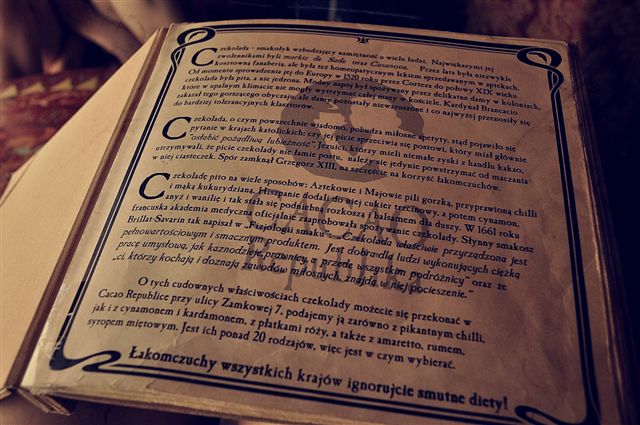 Czekolada – smakołyk wzbudzający namiętność u wielu ludzi. Największymi jej
zwolennikami byli markiz de Sade oraz Casanova. Przez lata była niezwykle
kosztowną fanaberią, ale była też homeopatycznym lekiem sprzedawanym w aptekach.
Od momentu sprowadzenia jej do Europy w 1520 roku przez Corteza do połowy XIX wieku
czekolada była pita, a nie jedzona. Modny napój był spożywany przez delikatne damy w koloniach,
które w upalnym klimacie nie mogły wytrzymać całej mszy w kościele. Kardynał Brancacio
zakazał tego gorszącego obyczaju, ale damy pozostały niewzruszone i co najwyżej przenosiły się
do bardziej tolerancyjnych klasztorów.
Czekolada, o czym powszechnie wiadomo, pobudza miłosne apetyty, stąd pojawiło się
pytanie w krajach katolickich: czy jej picie sprzeciwia się postowi, który miał głównie
"osłabić pożądliwą lubieżność". Jezuici, którzy mieli niemałe zyski z handlu kakao,
utrzymywali, że picie czekolady nie łamie postu, należy się jedynie powstrzymać od maczania
w niej ciasteczek. Spór zamknął Grzegorz XIII, na szczęście na korzyść łakomczuchów.
Czekoladę pito na wiele sposobów: Aztekowie i Majowie pili gorzką, przyprawioną chilli
i mąką kukurydzianą. Hiszpanie dodali do niej cukier trzcinowy, a potem cynamon,
anyż i wanilię i tak stała się podniebną rozkoszą i balsamem dla duszy. W 1661 roku
francuska akademia medyczna oficjalnie zaaprobowała spożywanie czekolady. Słynny smakosz
Brillat-Savarin tak napisał w „Fizjologii smaku": „Czekolada właściwie przyrządzona jest
pełnowartościowym i smacznym produktem. Jest dobra dla ludzi wykonujących ciężką
pracę umysłową, jak kaznodzieje, prawnicy, a przede wszystkim podróżnicy" oraz że
„ci, którzy kochają i doznają zawodów miłosnych, znajdą w niej pocieszenie."
CACAO
republika
O tych cudownych właściwościach czekolady możecie się przekonać w
Cacao Republice przy ulicy Zamkowej 7, podajemy ją zarówno z pikantnym chilli,
jak i z cynamonem i kardamonem, z płatkami róży, a także z amaretto, rumem,
syropem miętowym. Jest ich ponad 20 rodzajów, więc jest w czym wybierać.
Łakomczuchy wszystkich krajów ignorujcie smutne diety!